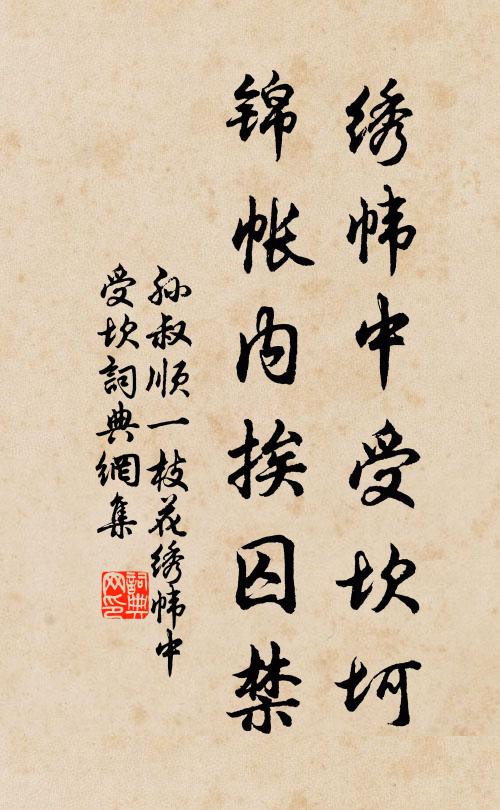 绣帏中受坎坷
锦帐内挨囚禁
孙叔顺一枝花绣帏中
受坎詞典網集
詞典
网印